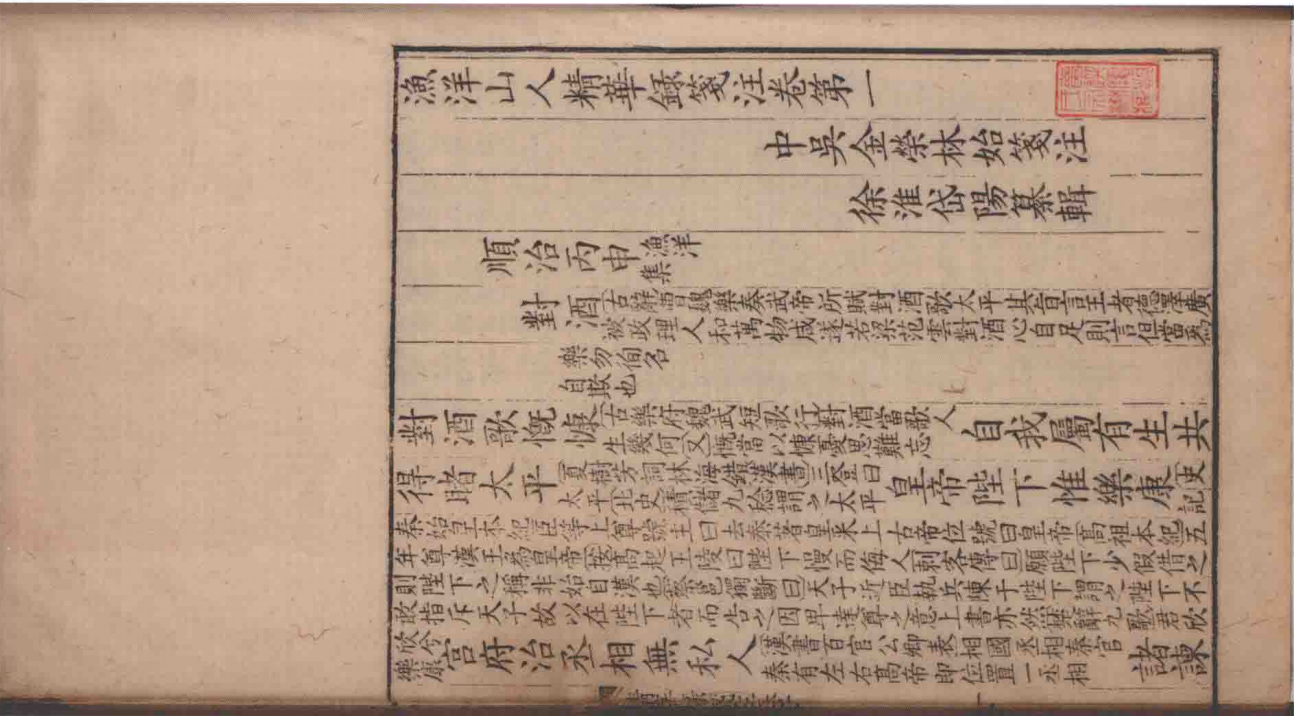 漁洋山人精華錄箋注卷第一
中吳金榮林始箋注
徐淮岱陽纂輯
順治丙申漁洋集
對酒古解曰魏樂奏武帝所賦對酒歌太平其旨言王者德澤廣
被政理人和萬物咸遂若梁范雲對酒心自足則言但當爲
樂勿徇名
自欺也
對酒歌慨慷古樂府魏武短歌行對酒當歌人生幾何又慨當以慷憂思難忘自我屬有生共
得睹太平夏樹芳詞林海錯漢書三登曰太平北史積儲九稔謂之太平皇帝陛下惟樂康史記
秦始皇本紀臣等上尊號王曰去泰著皇采上古帝位號曰皇帝高祖本紀五
年尊漢王爲皇帝按高起王陵曰陛下慢而侮人刺客傳曰願陛下少假借之
則陛下之稱非始自漢也蔡邕獨斷曰天子近臣執兵陳于陛下謂之陛下不
敢指斥天子故以在陛下者而告之因卑達尊之意上書亦然楚辭九歌君欣
欣兮樂康宮府治丞相無私人漢書百官公卿表相國丞相秦官秦有左右高帝即位置一丞相諸諫